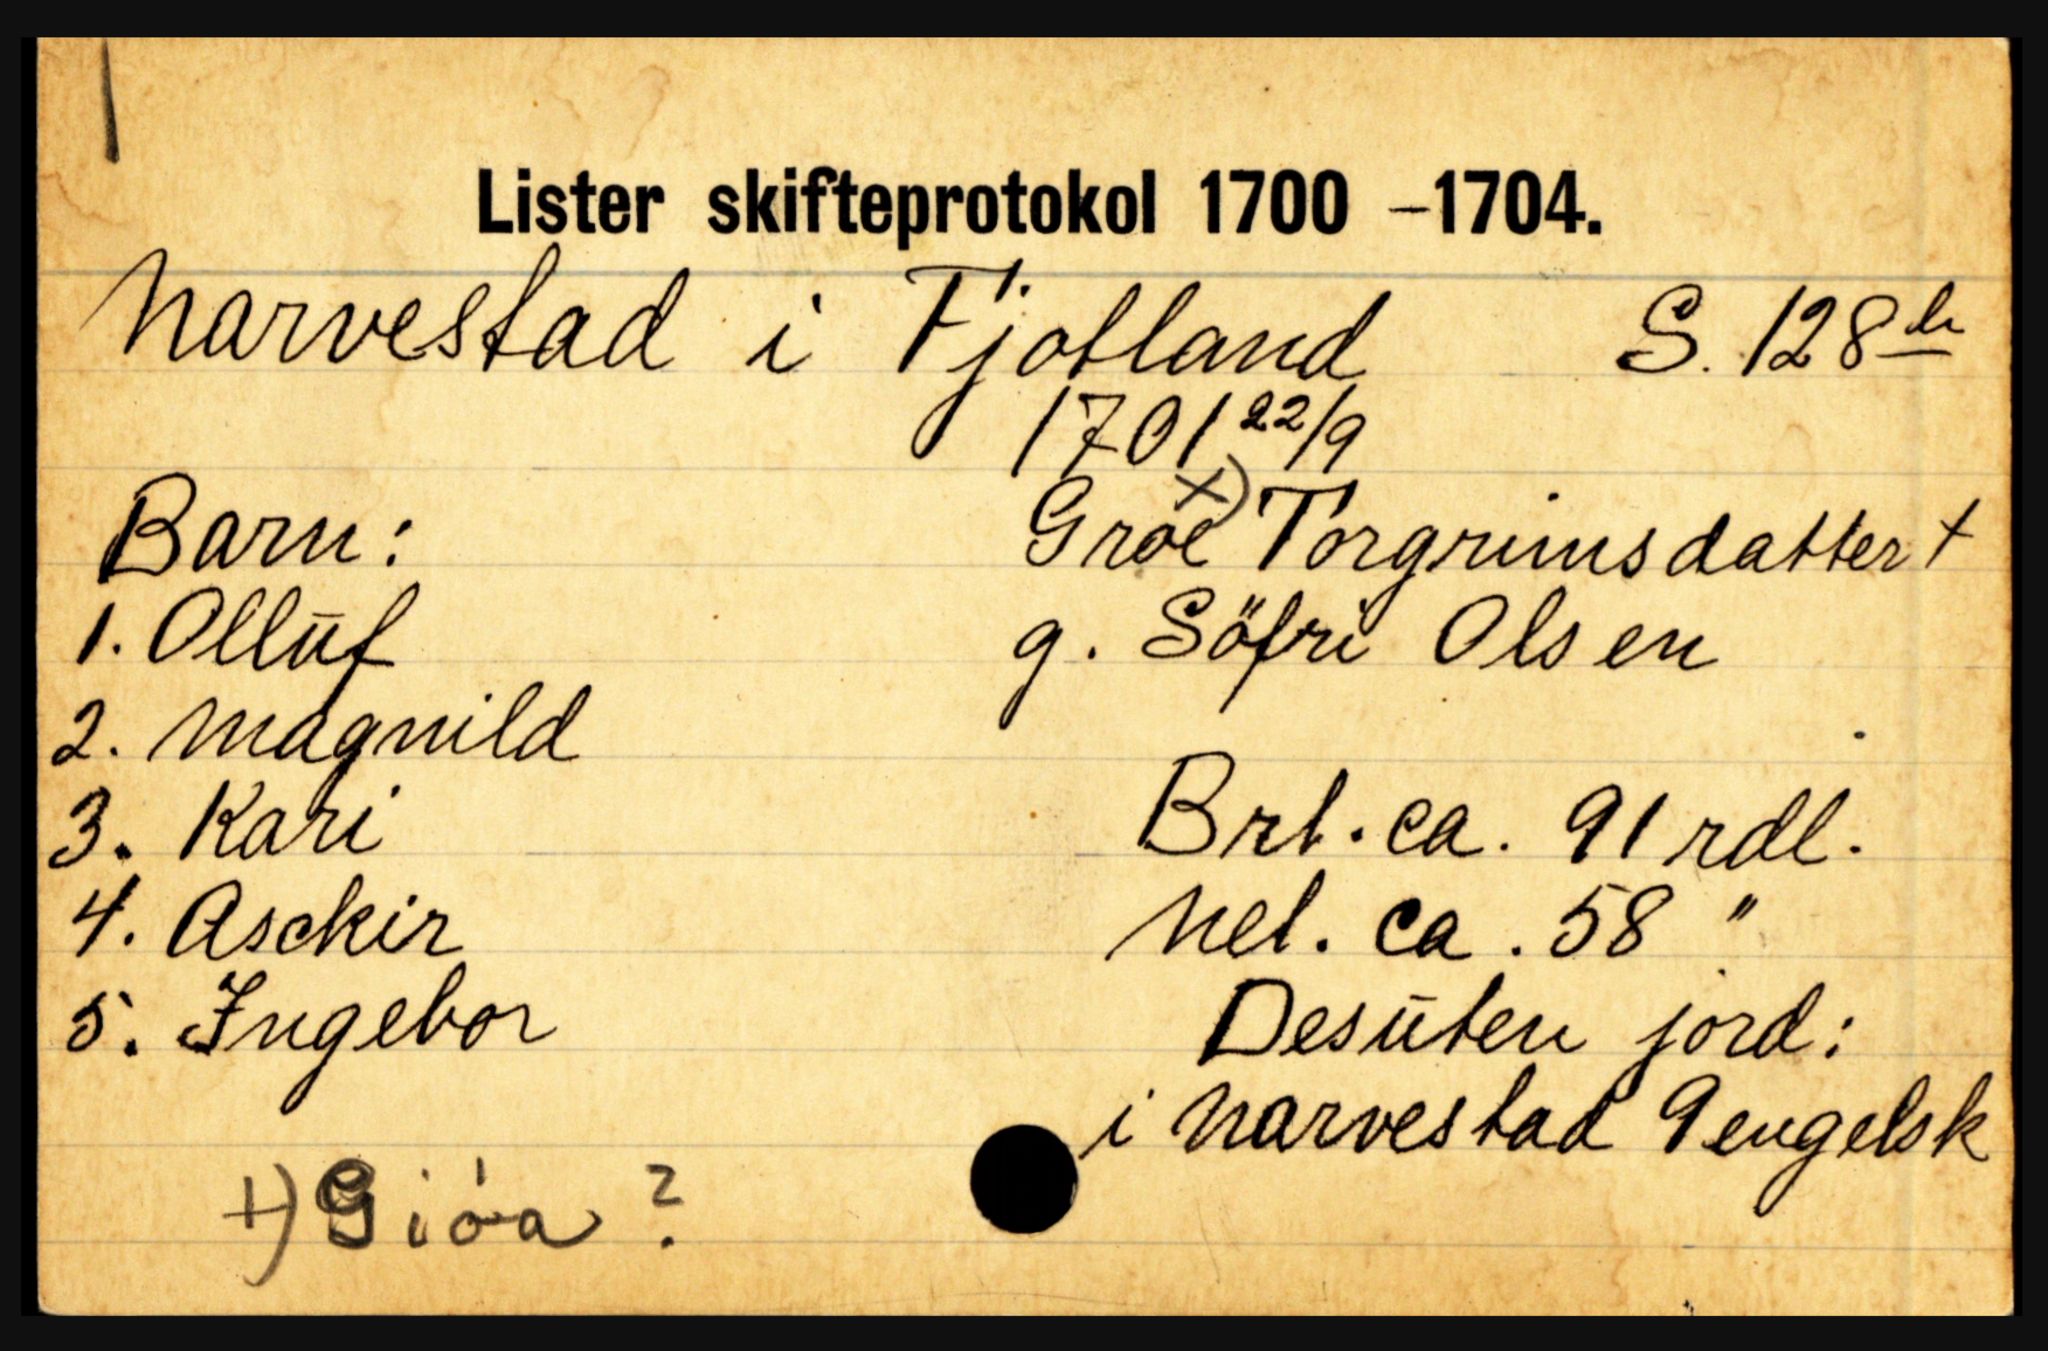 Lister skifteprotokol 1700 –1704.
Narvestad i Fjotland S. 128 b
1701 22/9
Barn: Groe x) Torgrimsdatter †
1. Olluf g. Söfri Olsen
2. Magnild
3. Kari Brt. ca. 91 rdl.
4. Asckir Net. ca. 58 "
5. Ingebor Desuten jord:
i Narvestad 9 engelsk
+) Gióa ?